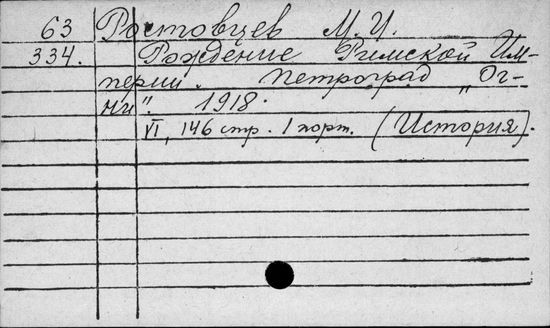 63 Ростовцев М. И.
334. Рождение Римской Им-
перии. Петроград „Ог-
ни". 1918.
VI, 146 стр. 1 порт. (История).